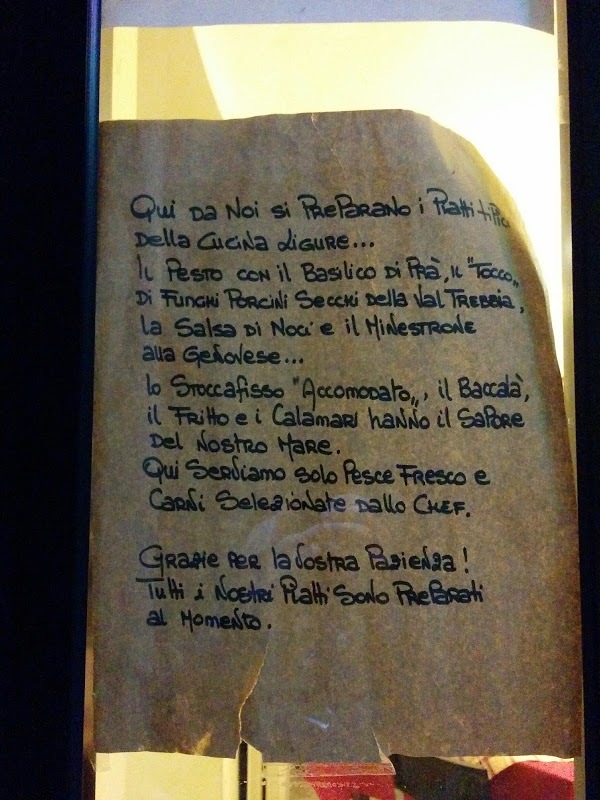 Qui da noi si preparano i piatti tipici
della cucina ligure...
Il Pesto con il Basilico di Prà, il "Tocco„
di Funghi Porcini Secchi della Val Trebbia,
la Salsa di Noci e il Minestrone
alla Genovese...
lo Stoccafisso "Accomodato„, il Baccalà,
il Fritto e i Calamari hanno il sapore
del nostro mare.
Qui serviamo solo pesce fresco e
carni selezionate dallo Chef.
Grazie per la Vostra Pazienza!
Tutti i nostri Piatti sono preparati
al momento.